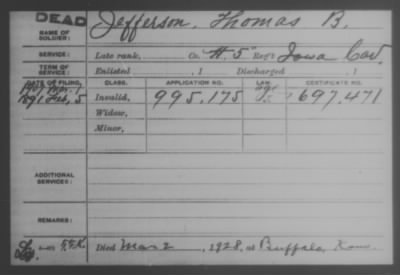 DEAD
NAME OF SOLDIER: Jefferson, Thomas B.
SERVICE: Late rank, Co. H. 5" Reg't Iowa Cav.
TERM OF SERVICE: Enlisted , 1 Discharged , 1
DATE OF FILING. CLASS. APPLICATION NO. LAW. CERTIFICATE NO.
1907 Mar. 1 age
1891 Feb, 5 Invalid, 995.175 697.471
Widow,
Minor,
ADDITIONAL SERVICES:
REMARKS:
Died Mar 2, 1928, at Buffalo, Kans.